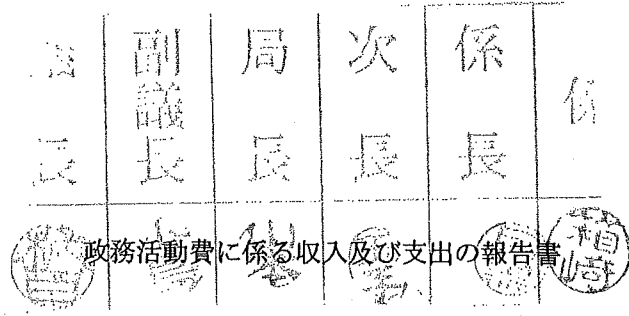 議長
副議長
局長
次長
係長
係
政務活動費に係る収入及び支出の報告書
箱崎